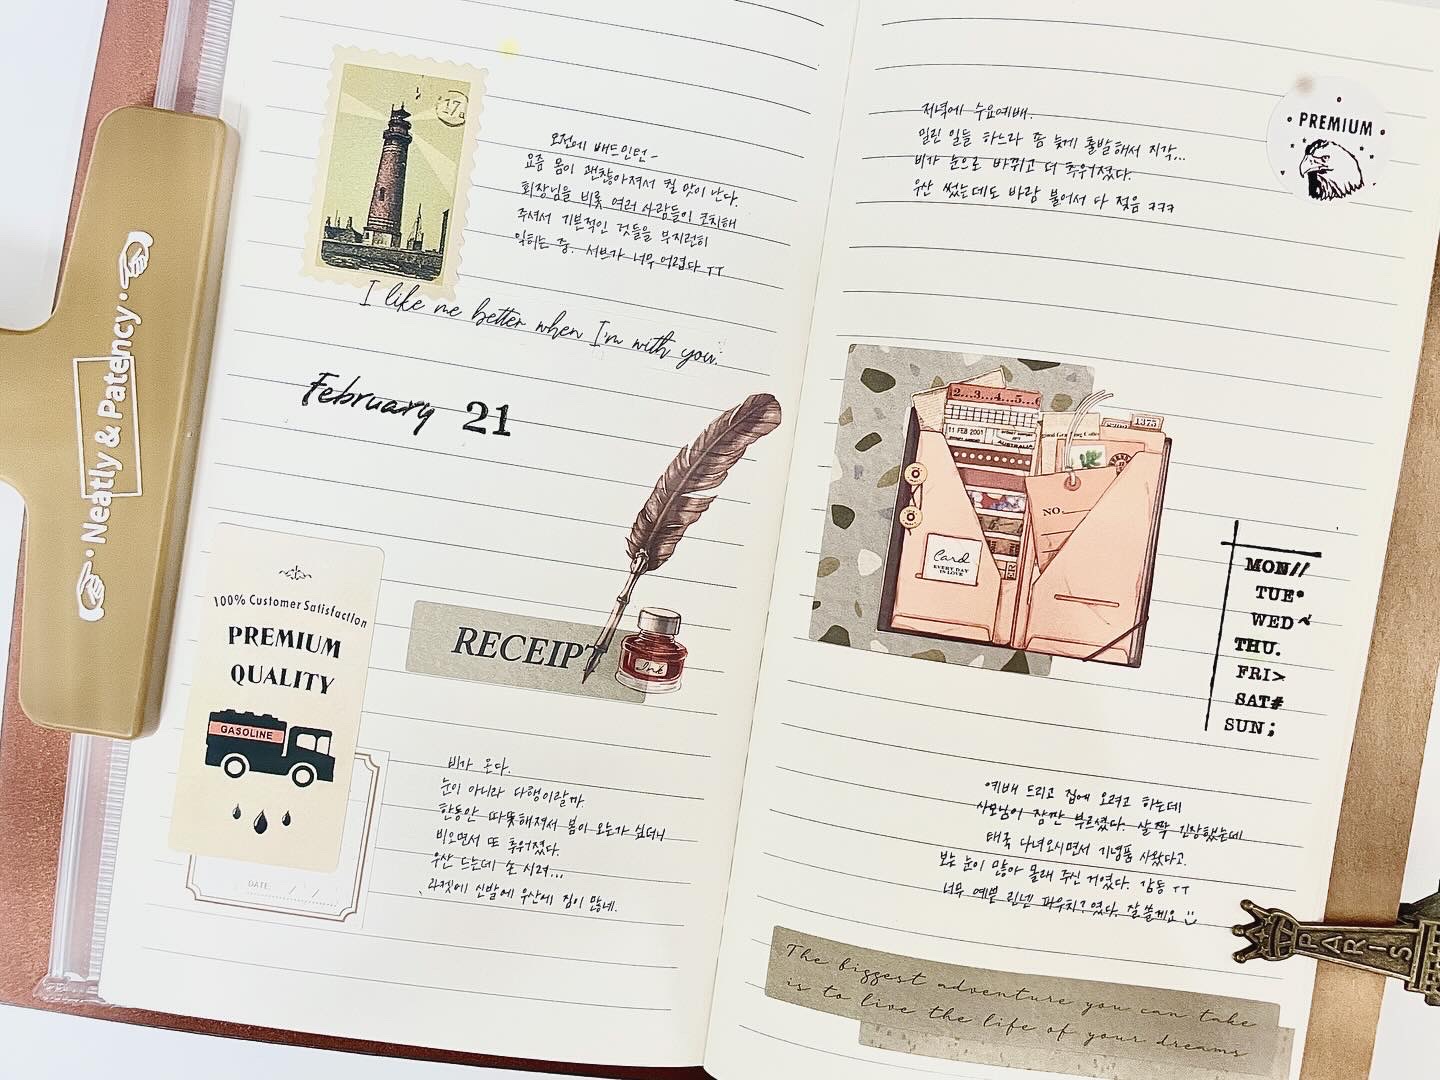 17
오전에 배드민턴~
요즘 몸이 괜찮아져서 칠 맛이 난다.
회장님을 비롯 여러 사람들이 코치해
주셔서 기본적인 것들을 부지런히
익히는 중. 서브가 너무 어렵다 ㅜㅜ
I like me better when I'm with you.
February 21
Neatly & Patency
100% Customer Satisfaction
PREMIUM
QUALITY
GASOLINE
DATE
RECEIPT
Ink
비가 온다.
눈이 아니라 다행이랄까.
한동안 따뜻해져서 봄이 오는가 싶더니
비오면서 또 추워졌다.
우산 드는데 손 시려...
라켓에 신발에 우산에 짐이 많네.
저녁에 수요예배.
밀린 일들 하느라 좀 늦게 출발해서 지각...
비가 눈으로 바뀌고 더 추워졌다.
우산 썼는데도 바람 불어서 다 젖음 ㅋㅋㅋ
PREMIUM
2...3...4...5...6
11 FEB 2001
AUSTRALIA
1375
NO.
Card
EVERY DAY
IS LOVE
MON//
TUE*
WED~
THU.
FRI>
SAT#
SUN;
예배 드리고 집에 오려고 하는데
사모님이 잠깐 부르셨다. 살짝 긴장했는데
태국 다녀오시면서 기념품 사왔다고.
보는 눈이 많아 몰래 주신 거였다. 감동 ㅜㅜ
너무 예쁜 린넨 파우치?였다. 잘 쓸게요
PARIS
The biggest adventure you can take
is to live the life of your dreams